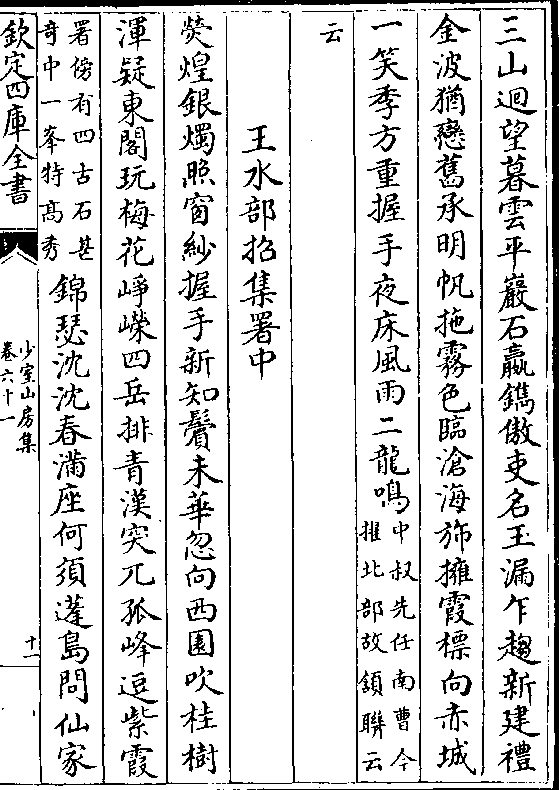 三山迴望暮雲平巖石贏鐫傲吏名玉漏乍趨新建禮
金波猶戀舊承明帆拖霧色臨滄海旆擁霞標向赤城
一笑季方重握手夜床風雨二龍鳴中叔先任南曹今
推北部故頷聯云
云
王水部招集署中
熒煌銀燭照窗紗握手新知鬢未華忽向西園吹桂樹
渾疑東閣玩梅花崢嶸四岳排青漢突兀孤峰逗紫霞
署傍有四古石甚
奇中一峯特高秀
錦瑟沈沈春滿座何須蓬島問仙家
欽定四庫全書
少室山房集
卷六十一
十一